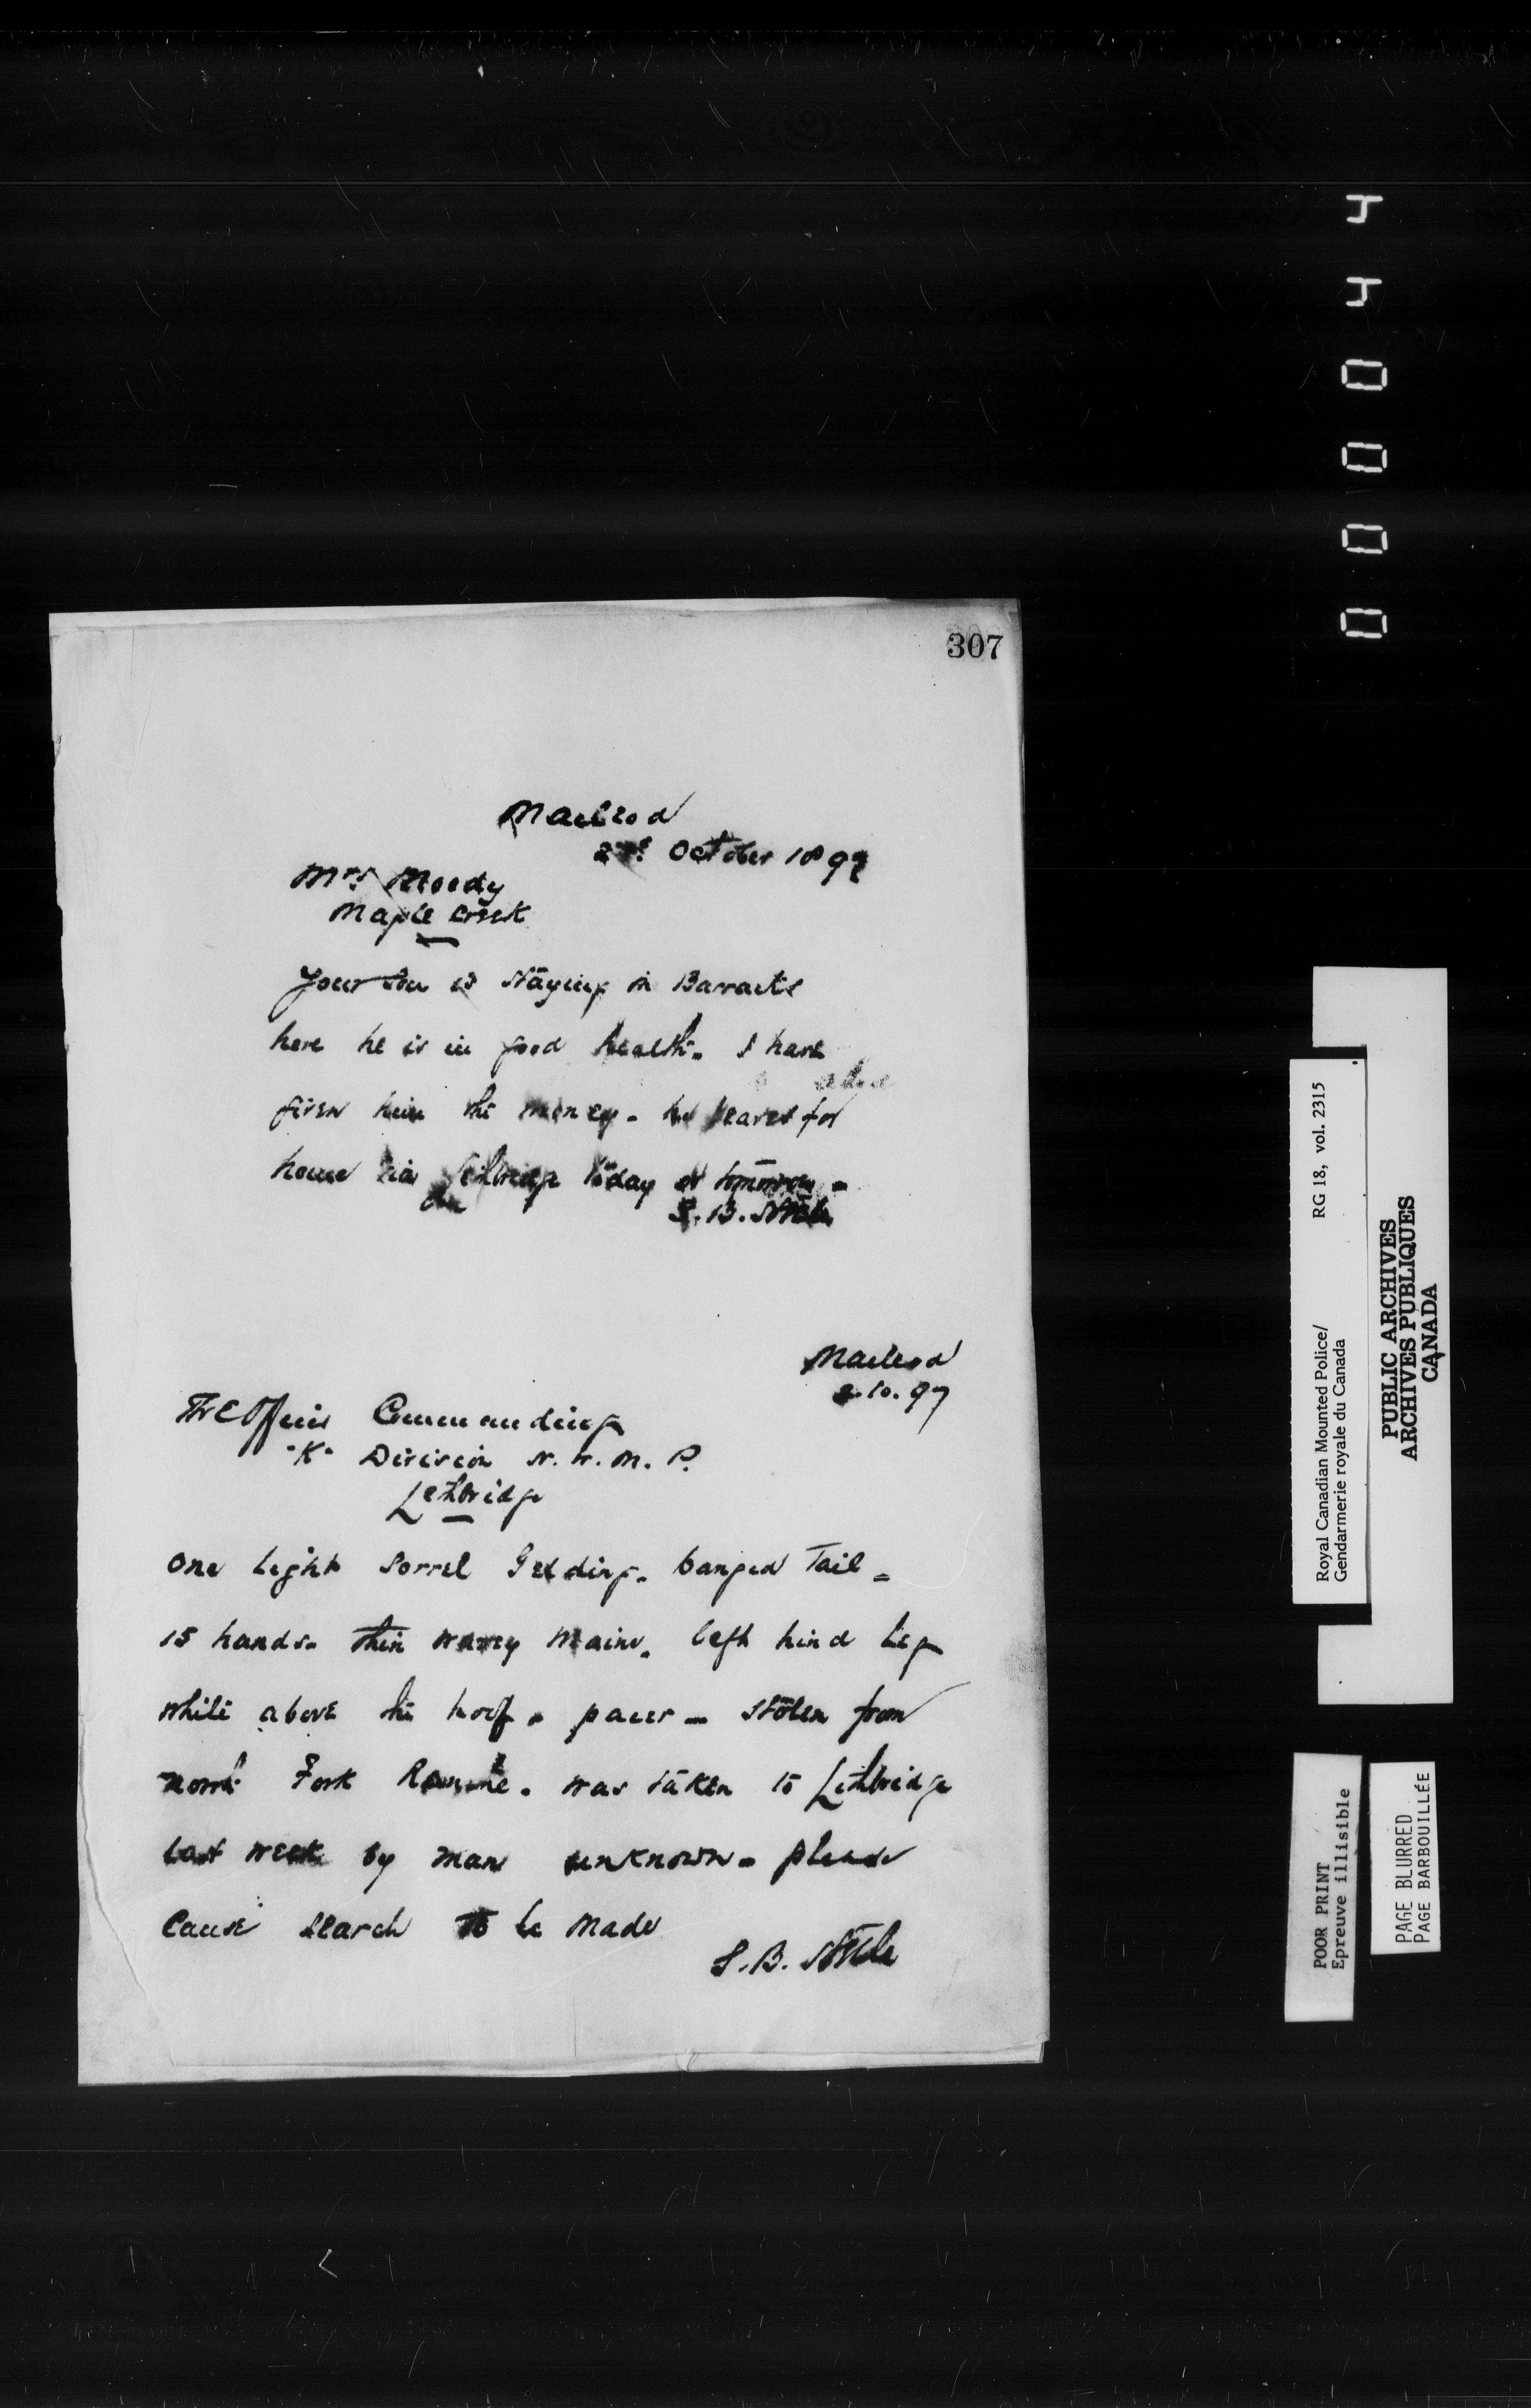 307
Macleod
2nd October 1897
Mrs Moody
Maple Creek
Your Son is staying in Barracks
here he is in good health. I have
given him the money. he leaves for
home via Lethbridge today or tomorrow
S. B. Steele
Macleod
2.10.97
The Officer Commanding
"K" Division N. W. M. P.
Lethbridge
One Light Sorrel Gelding. banged Tail =
15 hands. thin wavey Maine. left hind leg
white above the hoof. pacer - stolen from
North Fork. was taken to Lethbridge
last week by man unknown - please
Cause search to be made
S. B. Steele
440000
Royal Canadian Mounted Police/ RG 18, vol. 2315
Gendarmerie royale du Canada
PUBLIC ARCHIVES
ARCHIVES PUBLIQUES
CANADA
POOR PRINT
Epreuve illisible
PAGE BLURRED
PAGE BARBOUILLÉE